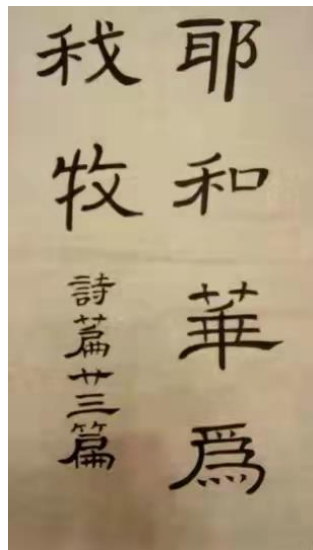 耶和華爲
我牧
詩篇廿三篇